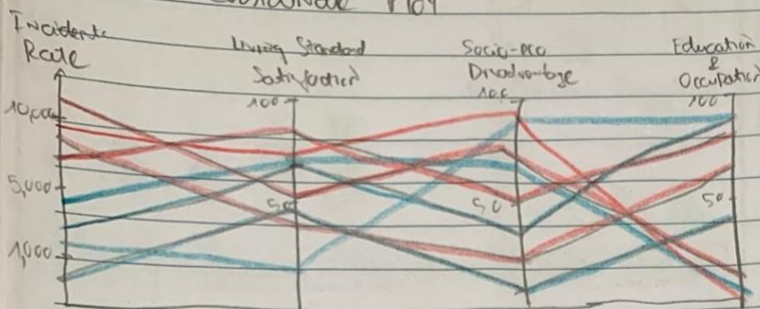 Plot
Incidents
Rate
Living Standard
Satisfaction
Socio-eco
Disadvantage
Education
&
Occupation
100
100
100
10,000
5,000
50
50
50
1,000